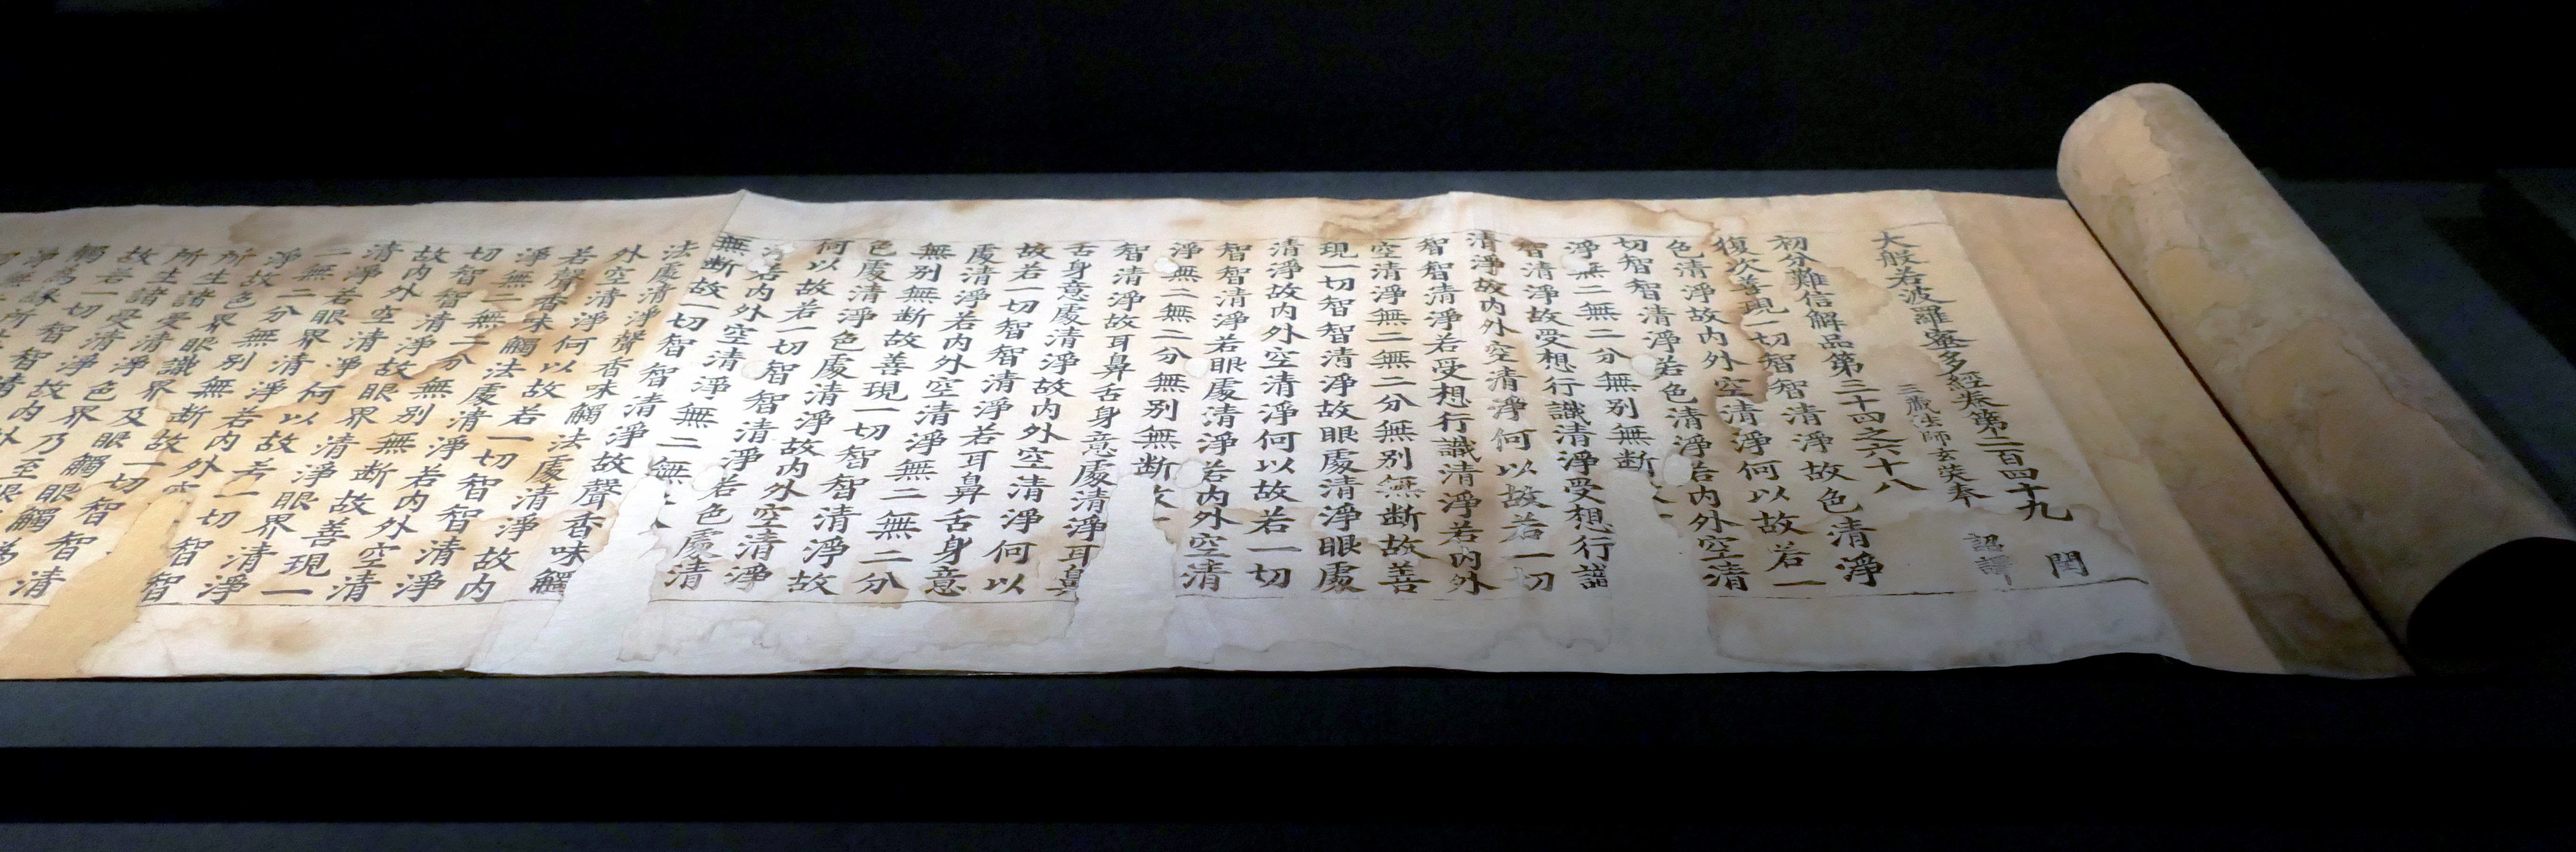 大般若波羅蜜多經卷第二百四十九 閏
三藏法師玄奘奉 詔譯
初分難信解品第三十四之六十八
復次善現一切智智清淨故色清淨
色清淨故内外空清淨何以故若一
切智智清淨若色清淨若内外空清
淨無二無二分無别無断
智清淨故受想行識清淨受想行識
清淨故内外空清淨何以故若一切
智智清淨若受想行識清淨若内外
空清淨無二無二分無别無断故善
現一切智智清淨故眼處清淨眼處
清淨故内外空清淨何以故若一切
智智清淨若眼處清淨若内外空清
淨無二無二分無别無断
智清淨故耳鼻舌身意處清淨耳鼻
舌身意處清淨故内外空清淨何以
故若一切智智清淨若耳鼻舌身意
處清淨若内外空清淨無二無二分
無别無断故善現一切智智清淨故
色處清淨色處清淨故内外空清淨
何以故若一切智智清淨若色處清
淨若内外空清淨無二無
無断故一切智智清淨故聲香味觸
法處清淨聲香味觸法處清淨故内
外空清淨何以故若一切智智清淨
若聲香味觸法處清淨若内外空清
淨無二無二分無别無断故善現一
切智智清淨故眼界清淨眼界清淨
故内外空清淨何以故若一切智智
清淨若眼界清淨若内外空
二無二分無别無断故一切智智清
淨故色界眼識界及眼觸眼觸
所生諸受清淨色界乃至眼觸